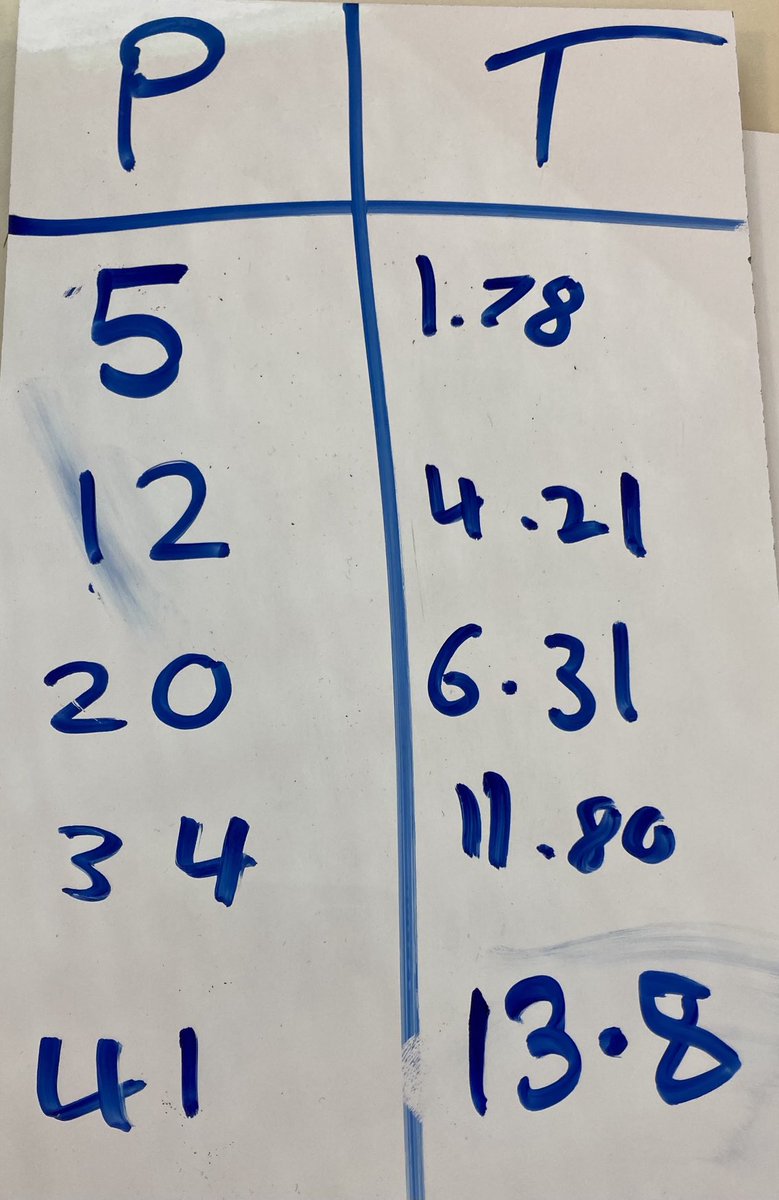 P T
5 1.78
12 4.21
20 6.31
34 11.80
41 13.8